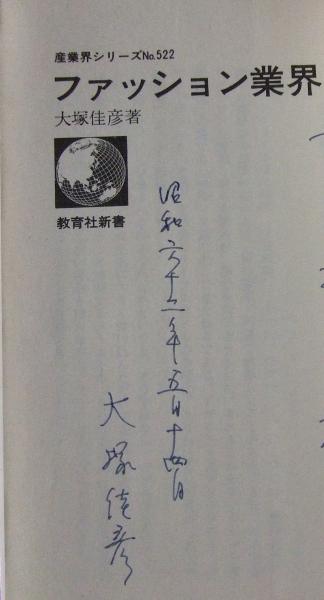 産業界シリーズNo.522
ファッション業界
大塚佳彦著
教育社新書
昭和六十二年五月十四日
大塚佳彦